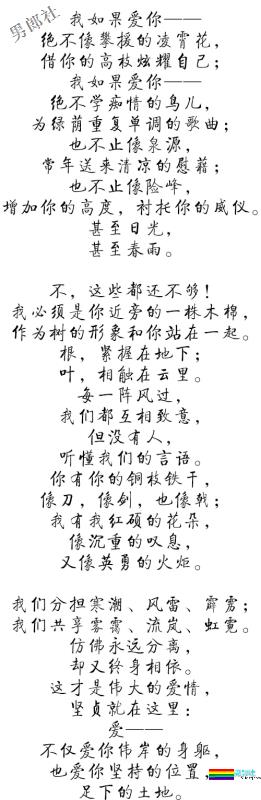 男郎社
我如果爱你——
绝不像攀援的凌霄花，
借你的高枝炫耀自己；
我如果爱你——
绝不学痴情的鸟儿，
为绿荫重复单调的歌曲；
也不止像泉源，
常年送来清凉的慰藉；
也不止像险峰，
增加你的高度，衬托你的威仪。
甚至日光，
甚至春雨。
不，这些都还不够！
我必须是你近旁的一株木棉，
作为树的形象和你站在一起。
根，紧握在地下；
叶，相触在云里。
每一阵风过，
我们都互相致意，
但没有人，
听懂我们的言语。
你有你的铜枝铁干，
像刀，像剑，也像戟；
我有我红硕的花朵，
像沉重的叹息，
又像英勇的火炬。
我们分担寒潮、风雷、霹雳；
我们共享雾霭、流岚、虹霓。
仿佛永远分离，
却又终身相依。
这才是伟大的爱情，
坚贞就在这里：
爱——
不仅爱你伟岸的身躯，
也爱你坚持的位置，
足下的土地。